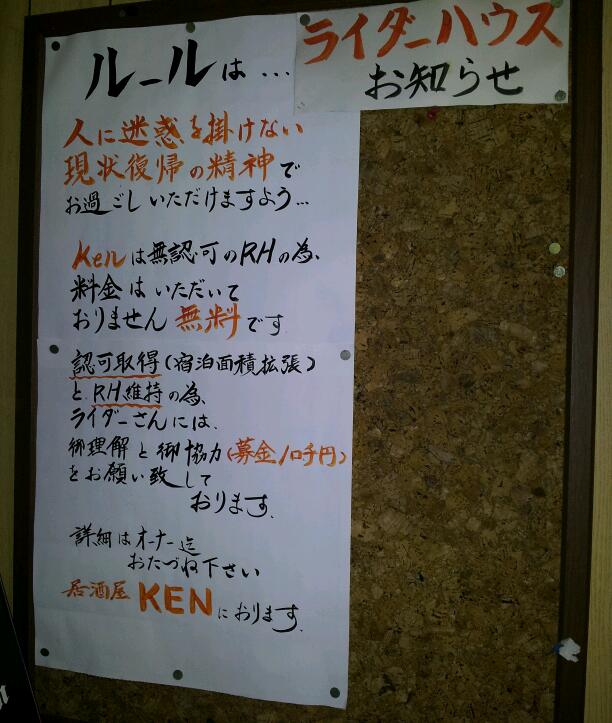 ライダーハウス
お知らせ
ルールは…
人に迷惑を掛けない
現状復帰の精神で
お過ごしいただけますよう…
Kenは無認可のRHの為、
料金はいただいて
おりません無料です.
認可取得(宿泊面積拡張)
と RH維持の為、
ライダーさんには、
御理解と御協力(募金/口千円)
をお願い致して
おります.
詳細はオーナー迄
おたづね下さい
居酒屋 KENにおります.